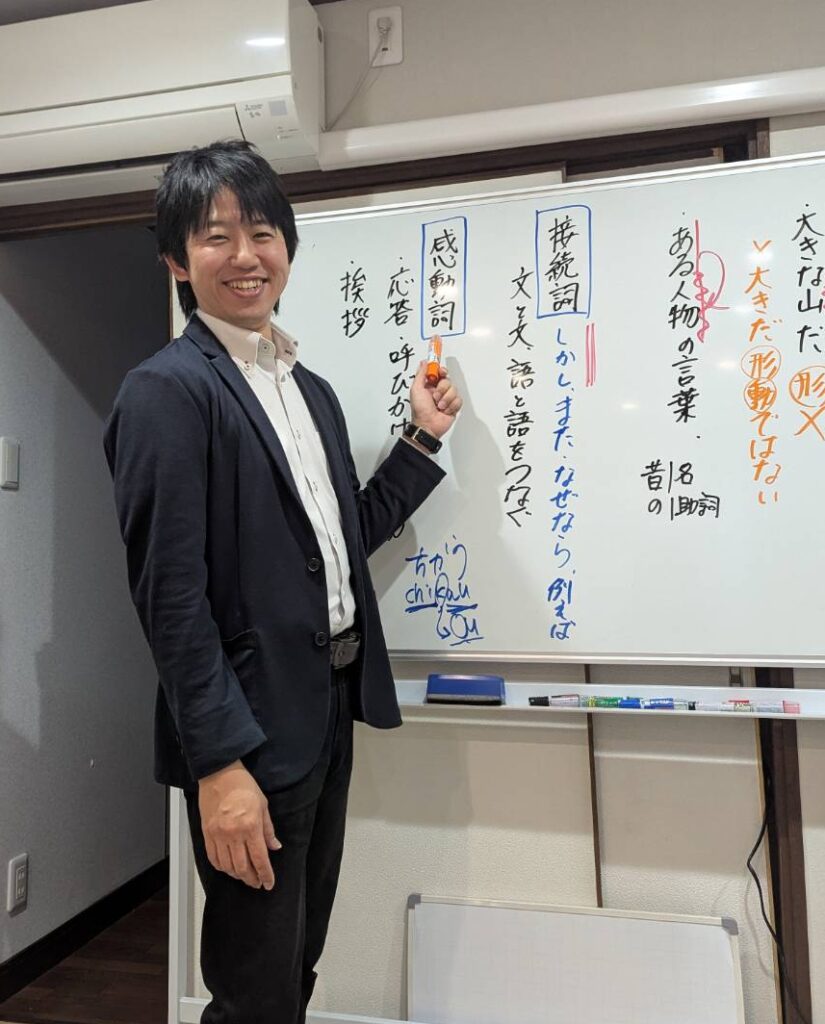 大きな山だ、形 ✕
✓大きだ、形動ではない
・ある人物の言葉、
昔の
名
助詞
接続詞 しかし、また、なぜなら、例えば
文と文、語と語をつなぐ
感動詞
・応答、呼びかけ
・挨拶
ちかう
chikau
ou